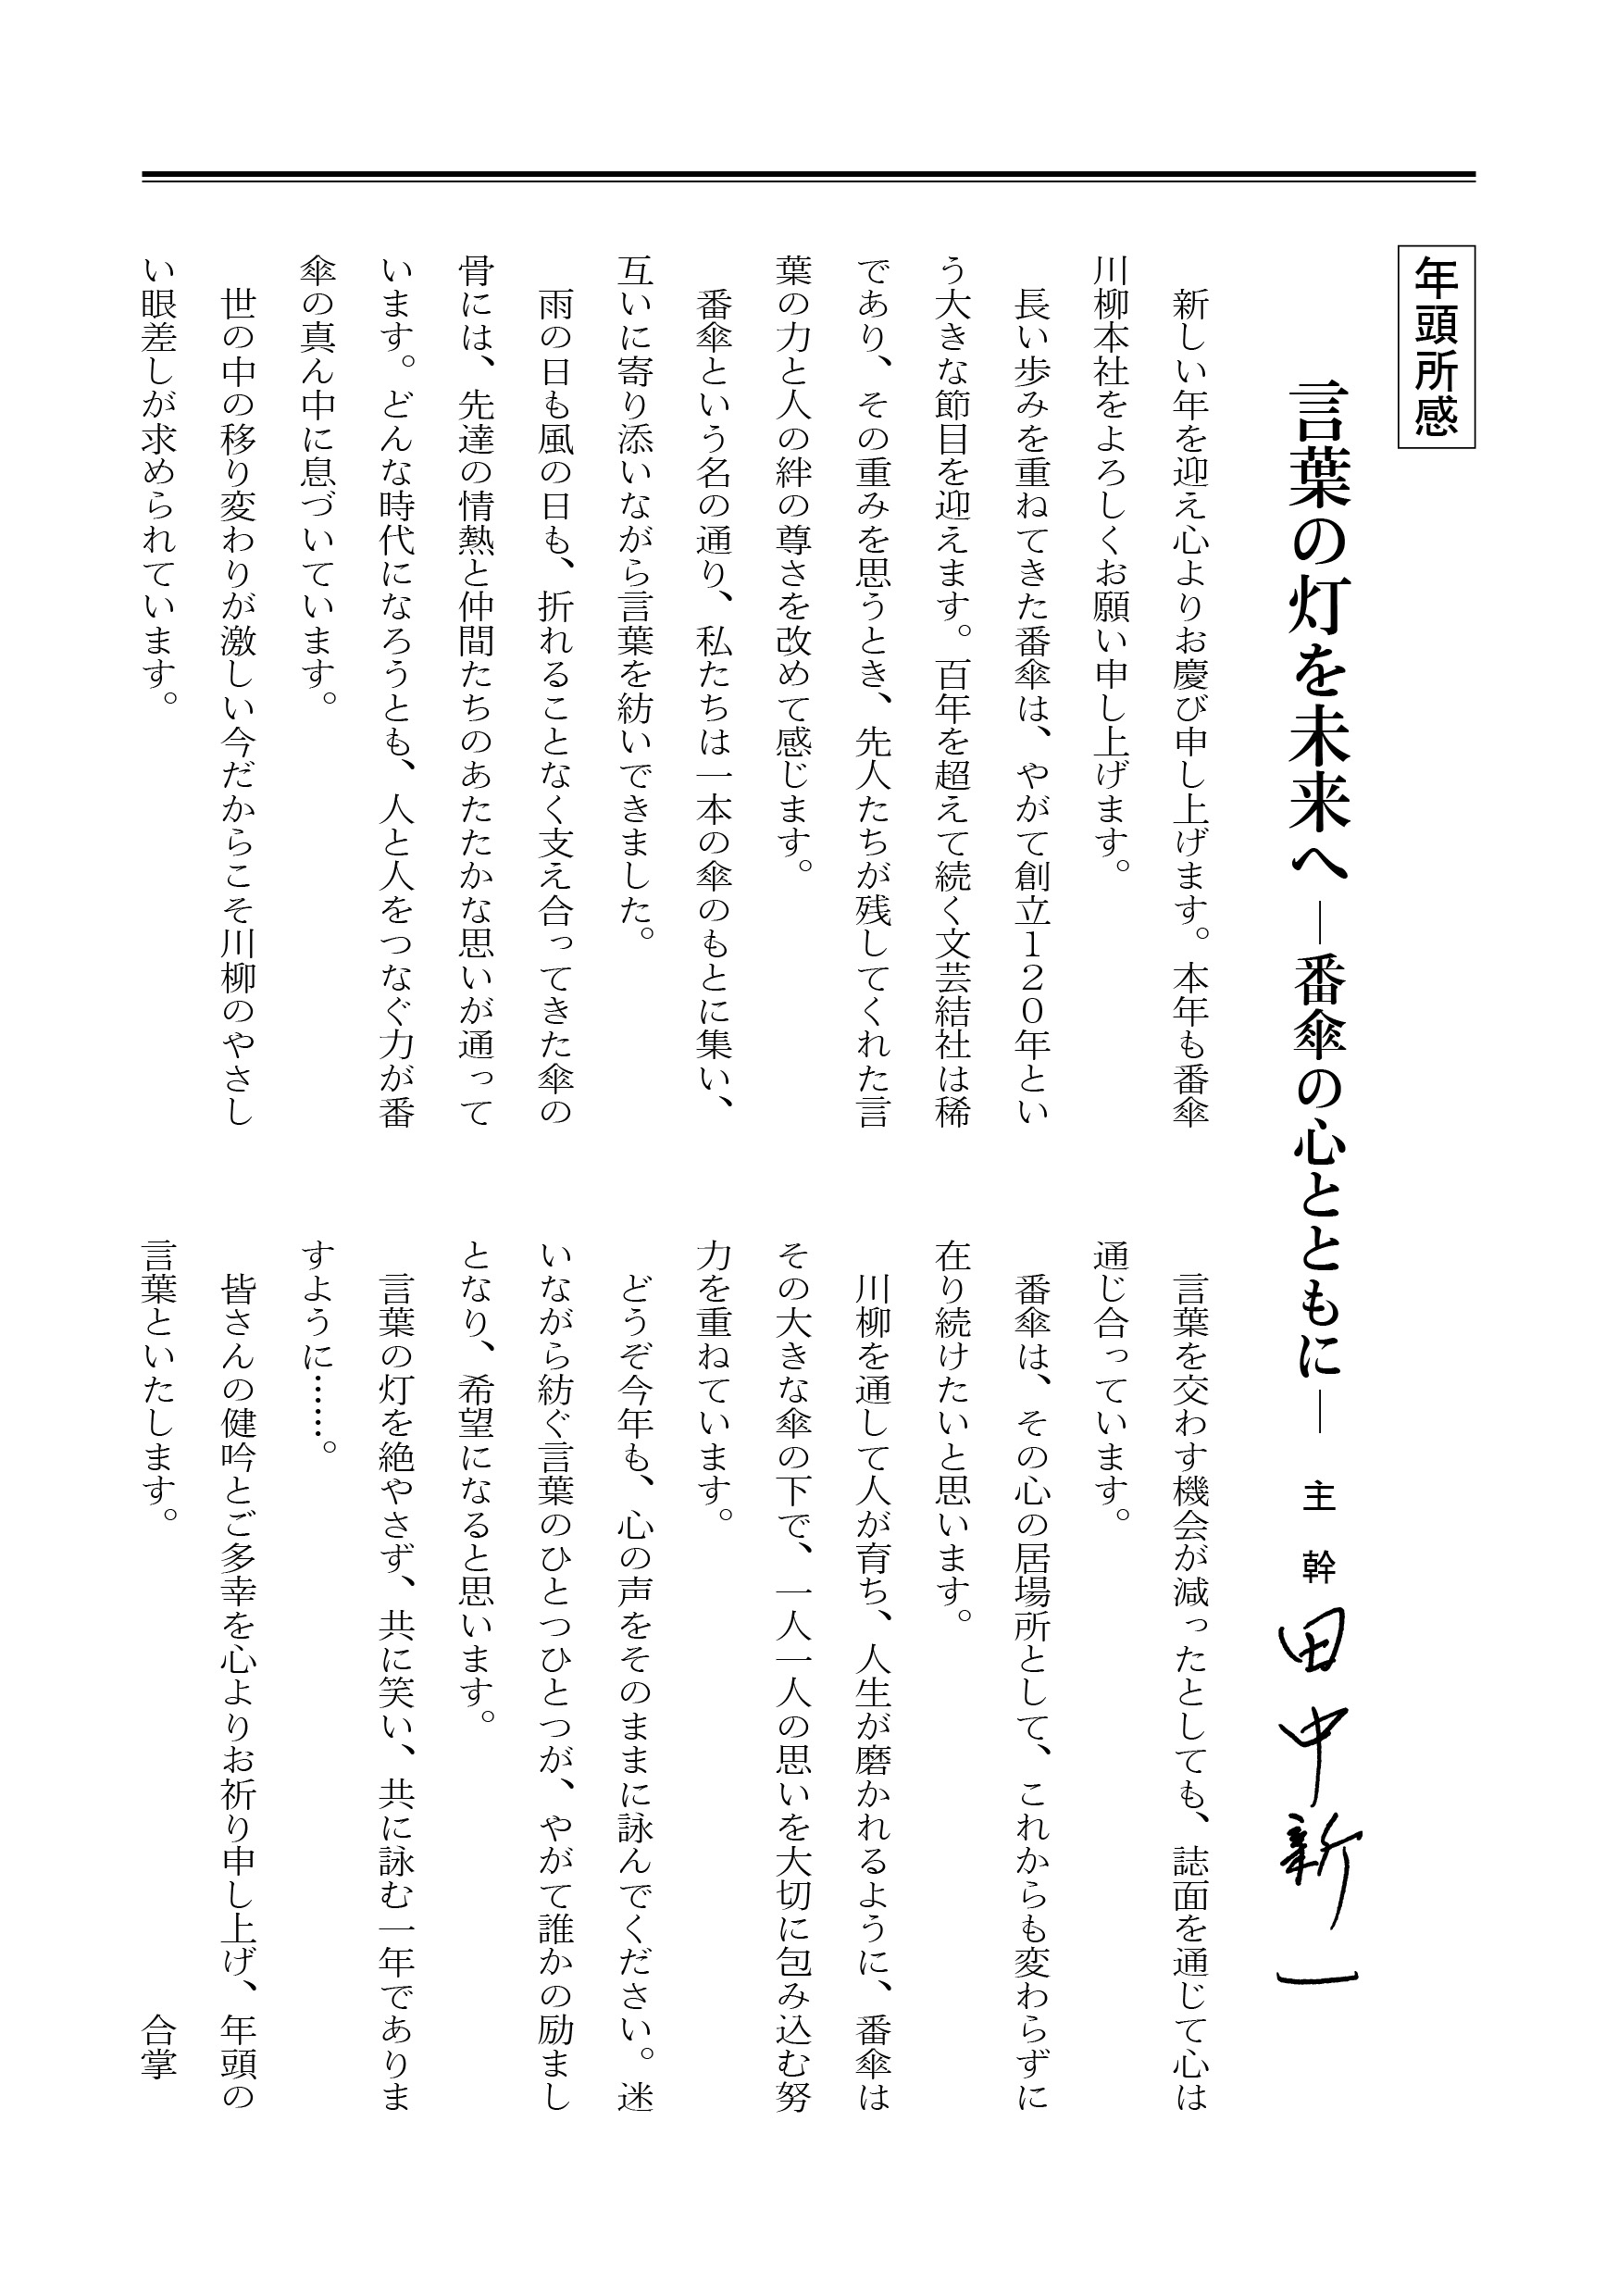 年頭所感
言葉の灯を未来へ―番傘の心とともに―　主幹 田中新一
　新しい年を迎え心よりお慶び申し上げます。本年も番傘
川柳本社をよろしくお願い申し上げます。
　長い歩みを重ねてきた番傘は、やがて創立１２０年とい
う大きな節目を迎えます。百年を超えて続く文芸結社は稀
であり、その重みを思うとき、先人たちが残してくれた言
葉の力と人の絆の尊さを改めて感じます。
　番傘という名の通り、私たちは一本の傘のもとに集い、
互いに寄り添いながら言葉を紡いできました。
　雨の日も風の日も、折れることなく支え合ってきた傘の
骨には、先達の情熱と仲間たちのあたたかな思いが通って
います。どんな時代になろうとも、人と人をつなぐ力が番
傘の真ん中に息づいています。
　世の中の移り変わりが激しい今だからこそ川柳のやさし
い眼差しが求められています。
　言葉を交わす機会が減ったとしても、誌面を通じて心は
通じ合っています。
　番傘は、その心の居場所として、これからも変わらずに
在り続けたいと思います。
　川柳を通して人が育ち、人生が磨かれるように、番傘は
その大きな傘の下で、一人一人の思いを大切に包み込む努
力を重ねています。
　どうぞ今年も、心の声をそのままに詠んでください。迷
いながら紡ぐ言葉のひとつひとつが、やがて誰かの励まし
となり、希望になると思います。
　言葉の灯を絶やさず、共に笑い、共に詠む一年でありま
すように……。
　皆さんの健吟とご多幸を心よりお祈り申し上げ、年頭の
言葉といたします。　合掌